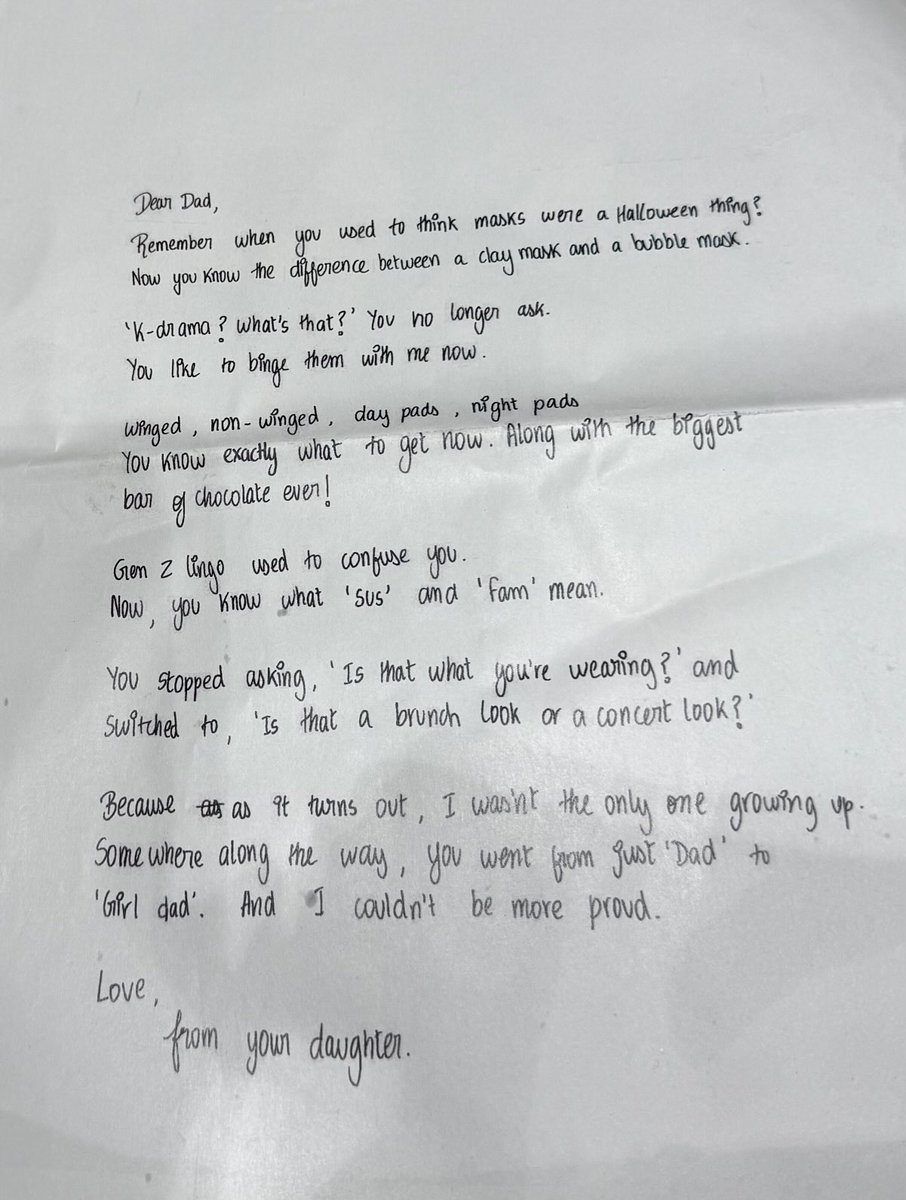 Dear Dad,
Remember when you used to think masks were a Halloween thing?
Now you know the difference between a clay mask and a bubble mask.
'K-drama? What's that?' You no longer ask.
You like to binge them with me now.
Winged, non-winged, day pads, night pads
You know exactly what to get now. Along with the biggest
bar of chocolate ever!
Gen Z lingo used to confuse you.
Now, you know what 'sus' and 'fam' mean.
You stopped asking, 'Is that what you're wearing?' and
switched to, 'Is that a brunch look or a concert look?'
Because as it turns out, I wasn't the only one growing up.
Somewhere along the way, you went from just 'Dad' to
'Girl dad'. And I couldn't be more proud.
Love,
from your daughter.